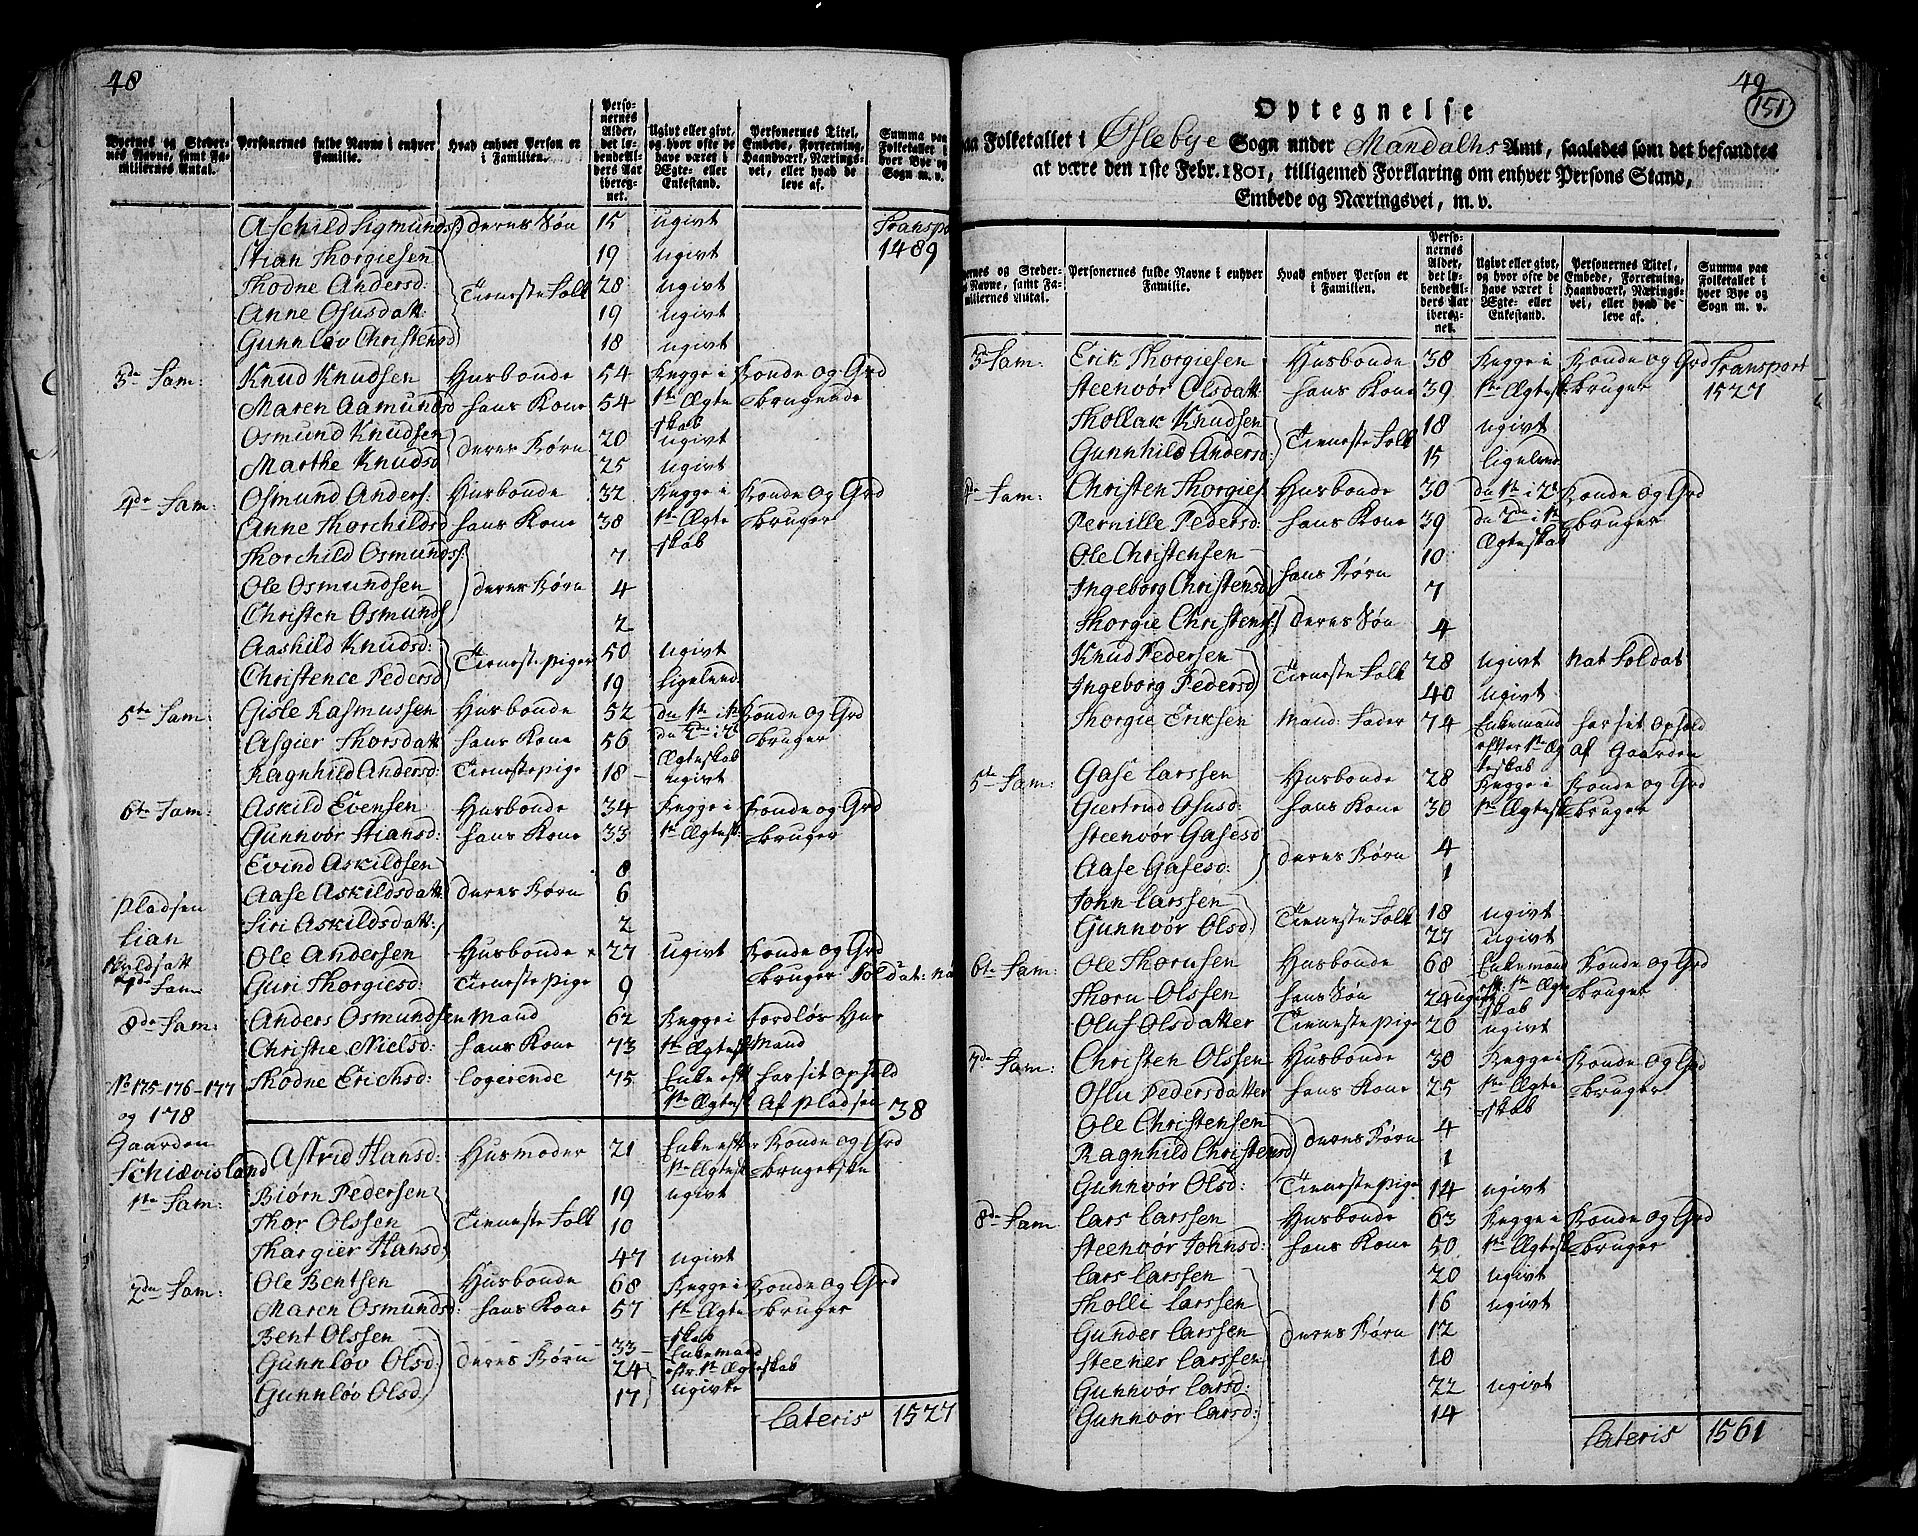 48
Byernes og Stedernes Navne, samt Familiernes Antal.
Personernes fulde Navne i enhver Familie.
Hvad enhver Person er i Familien.
Personernes Alder, det løbendeAlders Aar iberegnet.
Ugivt eller givt, og hvor ofte de have været i Ægte- eller Enkestand.
Personernes Titel, Embede, Forretning, Haandværk, Næringsvei, eller hvad de leve af.
Summa paa Folketallet i hver Bye og Sogn m. v.
Aschild Sigmunds. deres Søn 15 ugivt Transp
Stian Thorgiesen 19 ugivt 1489
Thodne Andersd: Tieneste Folk 28 ugivt
Anne Osusdatt: 19 ugivt
Gunnløv Christensd 18 ugivt
3de Fam: Knud Knudsen Husbonde 54 Begge i Bonde og Grd
Maren Aamundsd hans Kone 54 1te Ægte Brugende
skab
Osmund Knudsen deres Børn 20 ugivt
Marthe Knudsd 25 ugivt
4de Fam: Osmund Anders: Husbonde 32 Begge i Bonde og Grd
Anne Thorchildsd hans Kone 30 1te Ægte Bruger
Thorchild Osmunds: 7 skab
Ole Osmundsen deres Børn 4
Christen Osmunds 2
Aashild Knudsd: Tieneste piger 50 ugivt
Christence Pedersd 19 Ligeled
5te Fam: Gisle Rasmussen Husbonde 52 du 1te i 1te Bonde og Grd
Asgier Thorsdatt hans Kone 56 du 2de i 2de Bruger
Ægteskab
Ragnhild Andersd: Tienestepige 18 ugivt
6te Fam: Askild Evensen Husbonde 34 Begge i Bonde og Grd
Gunnvør Stiansd: hans Kone 33 1te Ægtesk: Bruger
Evind Askildsen 8
Aase Askildsdatt deres Børn 6
Pladsen
Siri Askildsdatt: 2
Lian
Ole Andersen Husbonde 27 ugivt Bonde og Grd
7de Fam Guri Thorgiesd: Tienestepige 9 Bruger Soldat: na
8de Fam: Anders Osmundsen Mand 62 Begge i Jordløs Hus
Christie Nielsd: hans Kone 73 1te Ægtesk Mand
No 175-176-177 Thodne Erichsd: Logerende 75 Enke eft har sit ophold
og 178 1te Ægtesk Af Pladsen 38
Gaarden
Schiævisland Astrid Hansd: Husmoder 21 Enke efter Bonde og Grd
1te Ægtesk Brugerske
1te Fam: Biørn Pedersen 19 ugivt
Thor Olssen Tieneste Folk 10
Thargier Hansd: 47 ugivt
2den Fam: Ole Bentsen Husbonde 68 Begge i Bonde og Grd
Maren Osmundsd: hans Kone 57 1te Ægte Bruger
skab
Bent Olssen 33 Enkemand
Gunnløv Olsd: deres Børn 24 eftr. 1te Ægteskab
Gunnløv Olsd 17 ugivte
Lateris 1527
49
151
Optegnelse
paa Folketallet i Øslebye Sogn under Mandalhs Amt, saaledes som det befandtes
at være den 1ste Febr. 1801, tilligemed Forklaring om enhver Persons Stand,
Embede og Næringsvei, m. v.
Byernes og Stedernes Navne, samt Familiernes Antal.
Personernes fulde Navne i enhver Familie.
Hvad enhver Person er i Familien.
Personernes Alder, det løbendeAlders Aar iberegnet.
Ugivt eller givt, og hvor ofte de have været i Ægte- eller Enkestand.
Personernes Titel, Embede, Forretning, Haandværk, Næringsvei, eller hvad de leve af.
Summa paa Folketallet i hver Bye og Sogn m. v.
3de Fam: Erik Thorgiesen Husbonde 38 Begge i Bonde og Grd Transport
Steenvør Olsdatt: hans Kone 39 1te Ægtesk: Bruger 1527
Thollak Knudsen Tieneste Folk 18 ugivt
Gunnhild Andersd: 15 ligeled
4de Fam: Christen Thorgies: Husbonde 30 du 1te i 2de Bonde og Grd
Pernille Pedersd: hans Kone 39 du 2de i 1te Bruger
Ægteskab
Ole Christensen hans Børn 10
Ingeborg Christensd 7
Thorgie Christens: deres Søn 4
Knud Pedersen Tieneste Folk 28 ugivt Nat Soldat
Ingeborg Pedersd 40 ugivt
Thorgie Eriksen Mand: Fader 74 Enkemand har sit ophold
efter 1te Æg af Gaarden
teskab
5te Fam: Gase Larssen Husbonde 28 Begge i Bonde og Grd
Giertrud Osusd: hans Kone 30 1te Ægtesk: Bruger
Steenvør Gasesd deres Børn 4
Aase Gasesd: 1
John Larssen Tieneste Folk 18 ugivt
Gunnvør Olsd 27 ugivt
6te Fam: Ole Thornsen Husbonde 68 Enkemand Bonde og Grd
Thorn Olssen hans Søn 24 ugivt eft. 1te Ægte Bruger
skab
Oluf Olsdatter Tienestepige 20 ugivt
7de Fam: Christen Olssen Husbonde 30 Begge i Bonde og Grd
Oslu Pedersdatter hans Kone 25 1te Ægte Bruger
skab
Ole Christensen deres Børn 4
Ragnhild Christensd 1
Gunnvør Olsd: Tienestepige 14 ugivt
8de Fam Lars Larssen Husbonde 63 Begge i Bonde og Grd
Steenvør Johnsd: hans Kone 50 1te Ægtesk Bruger
Lars Larssen 20 ugivt
Tholli Larssen 16 ugivt
Gunder Larssen deres Børn 12
Steener Larssen 10
Gunnvør Larsd: 22 ugivt
Gunnvør Larsd: 14
Lateris 1561